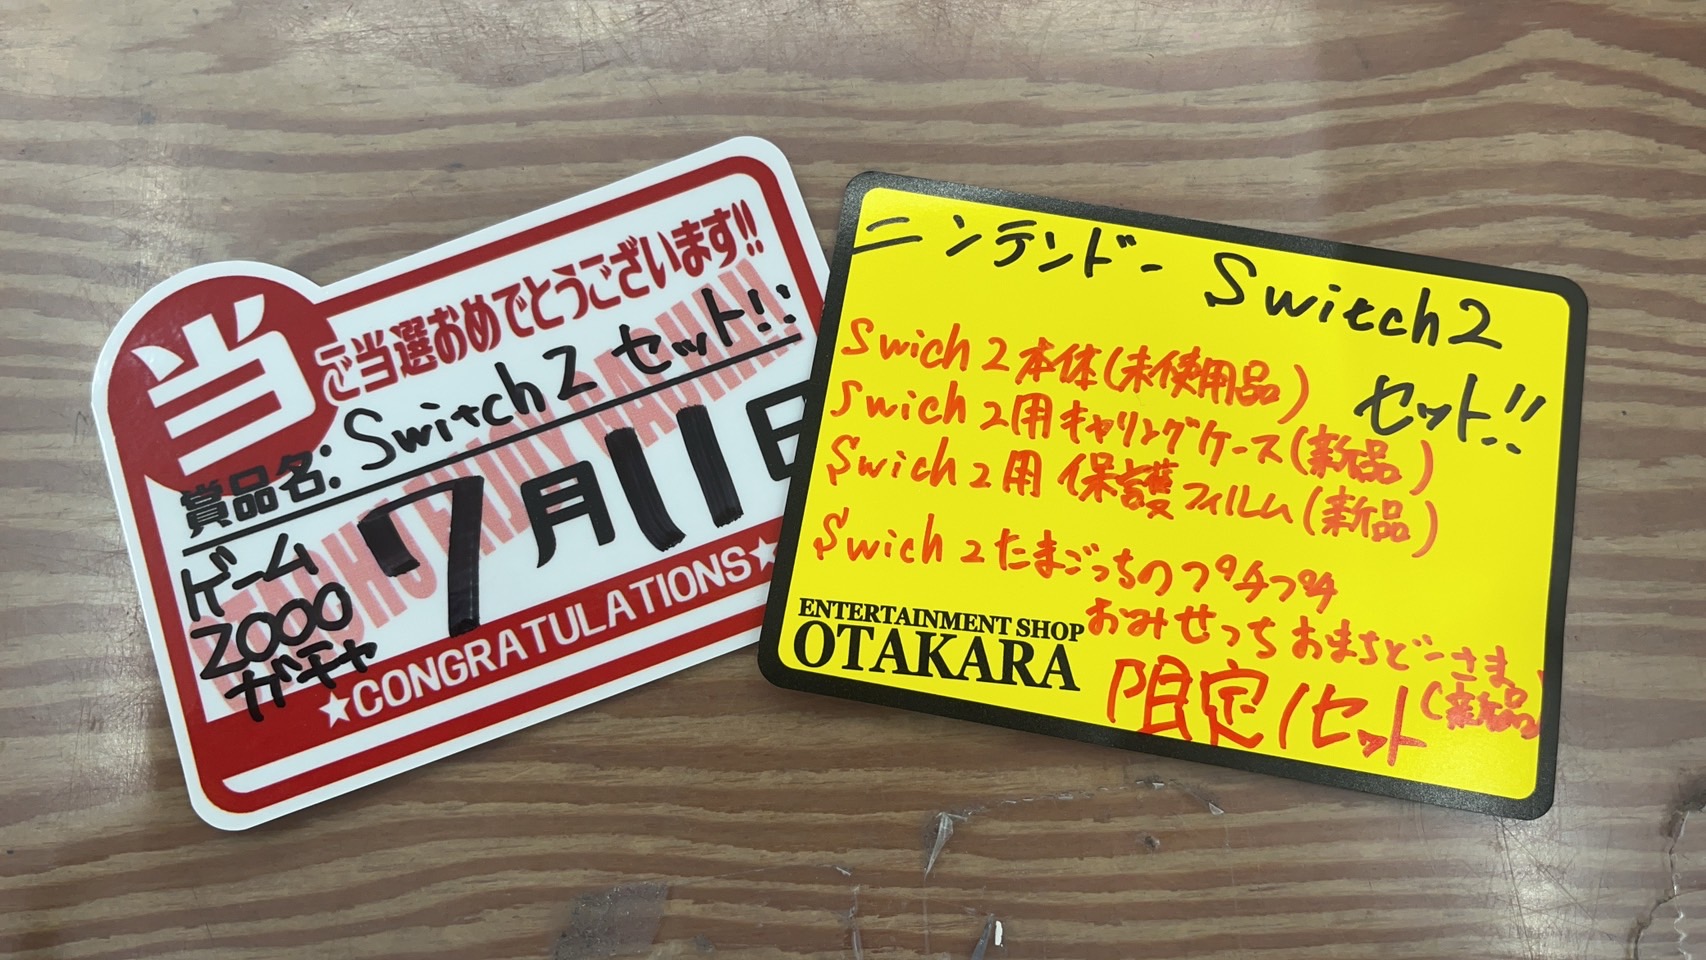 当
ご当選おめでとうございます!!
賞品名:Switch2 セット!!
7月11日
ゲーム
2000
ガチャ
★CONGRATULATIONS★
ニンテンドー Switch2
セット!!
Swich 2 本体(未使用品)
Swich 2用キャリングケース(新品)
Swich 2用 保護フィルム(新品)
Swich 2 たまごっちのプチプチ
おみせっち おまちどーさま。
(新品)
限定1セット
ENTERTAINMENT SHOP
OTAKARA